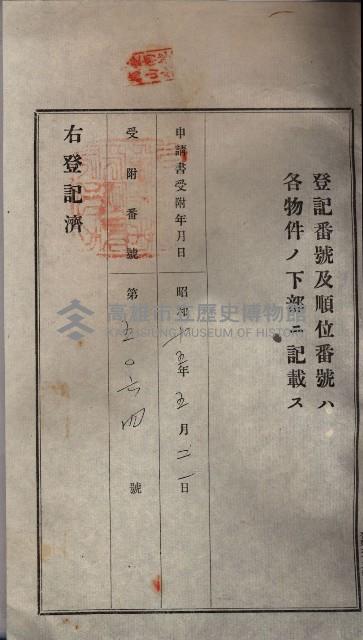 登記番號及順位番號ハ
各物件ノ下部ニ記載ス
申請書受附年月日
昭和十五年五月二一日
受附番號
第五〇六四號
右登記濟
高雄市立歷史博物館
KAOHSIUNG MUSEUM OF HISTORY